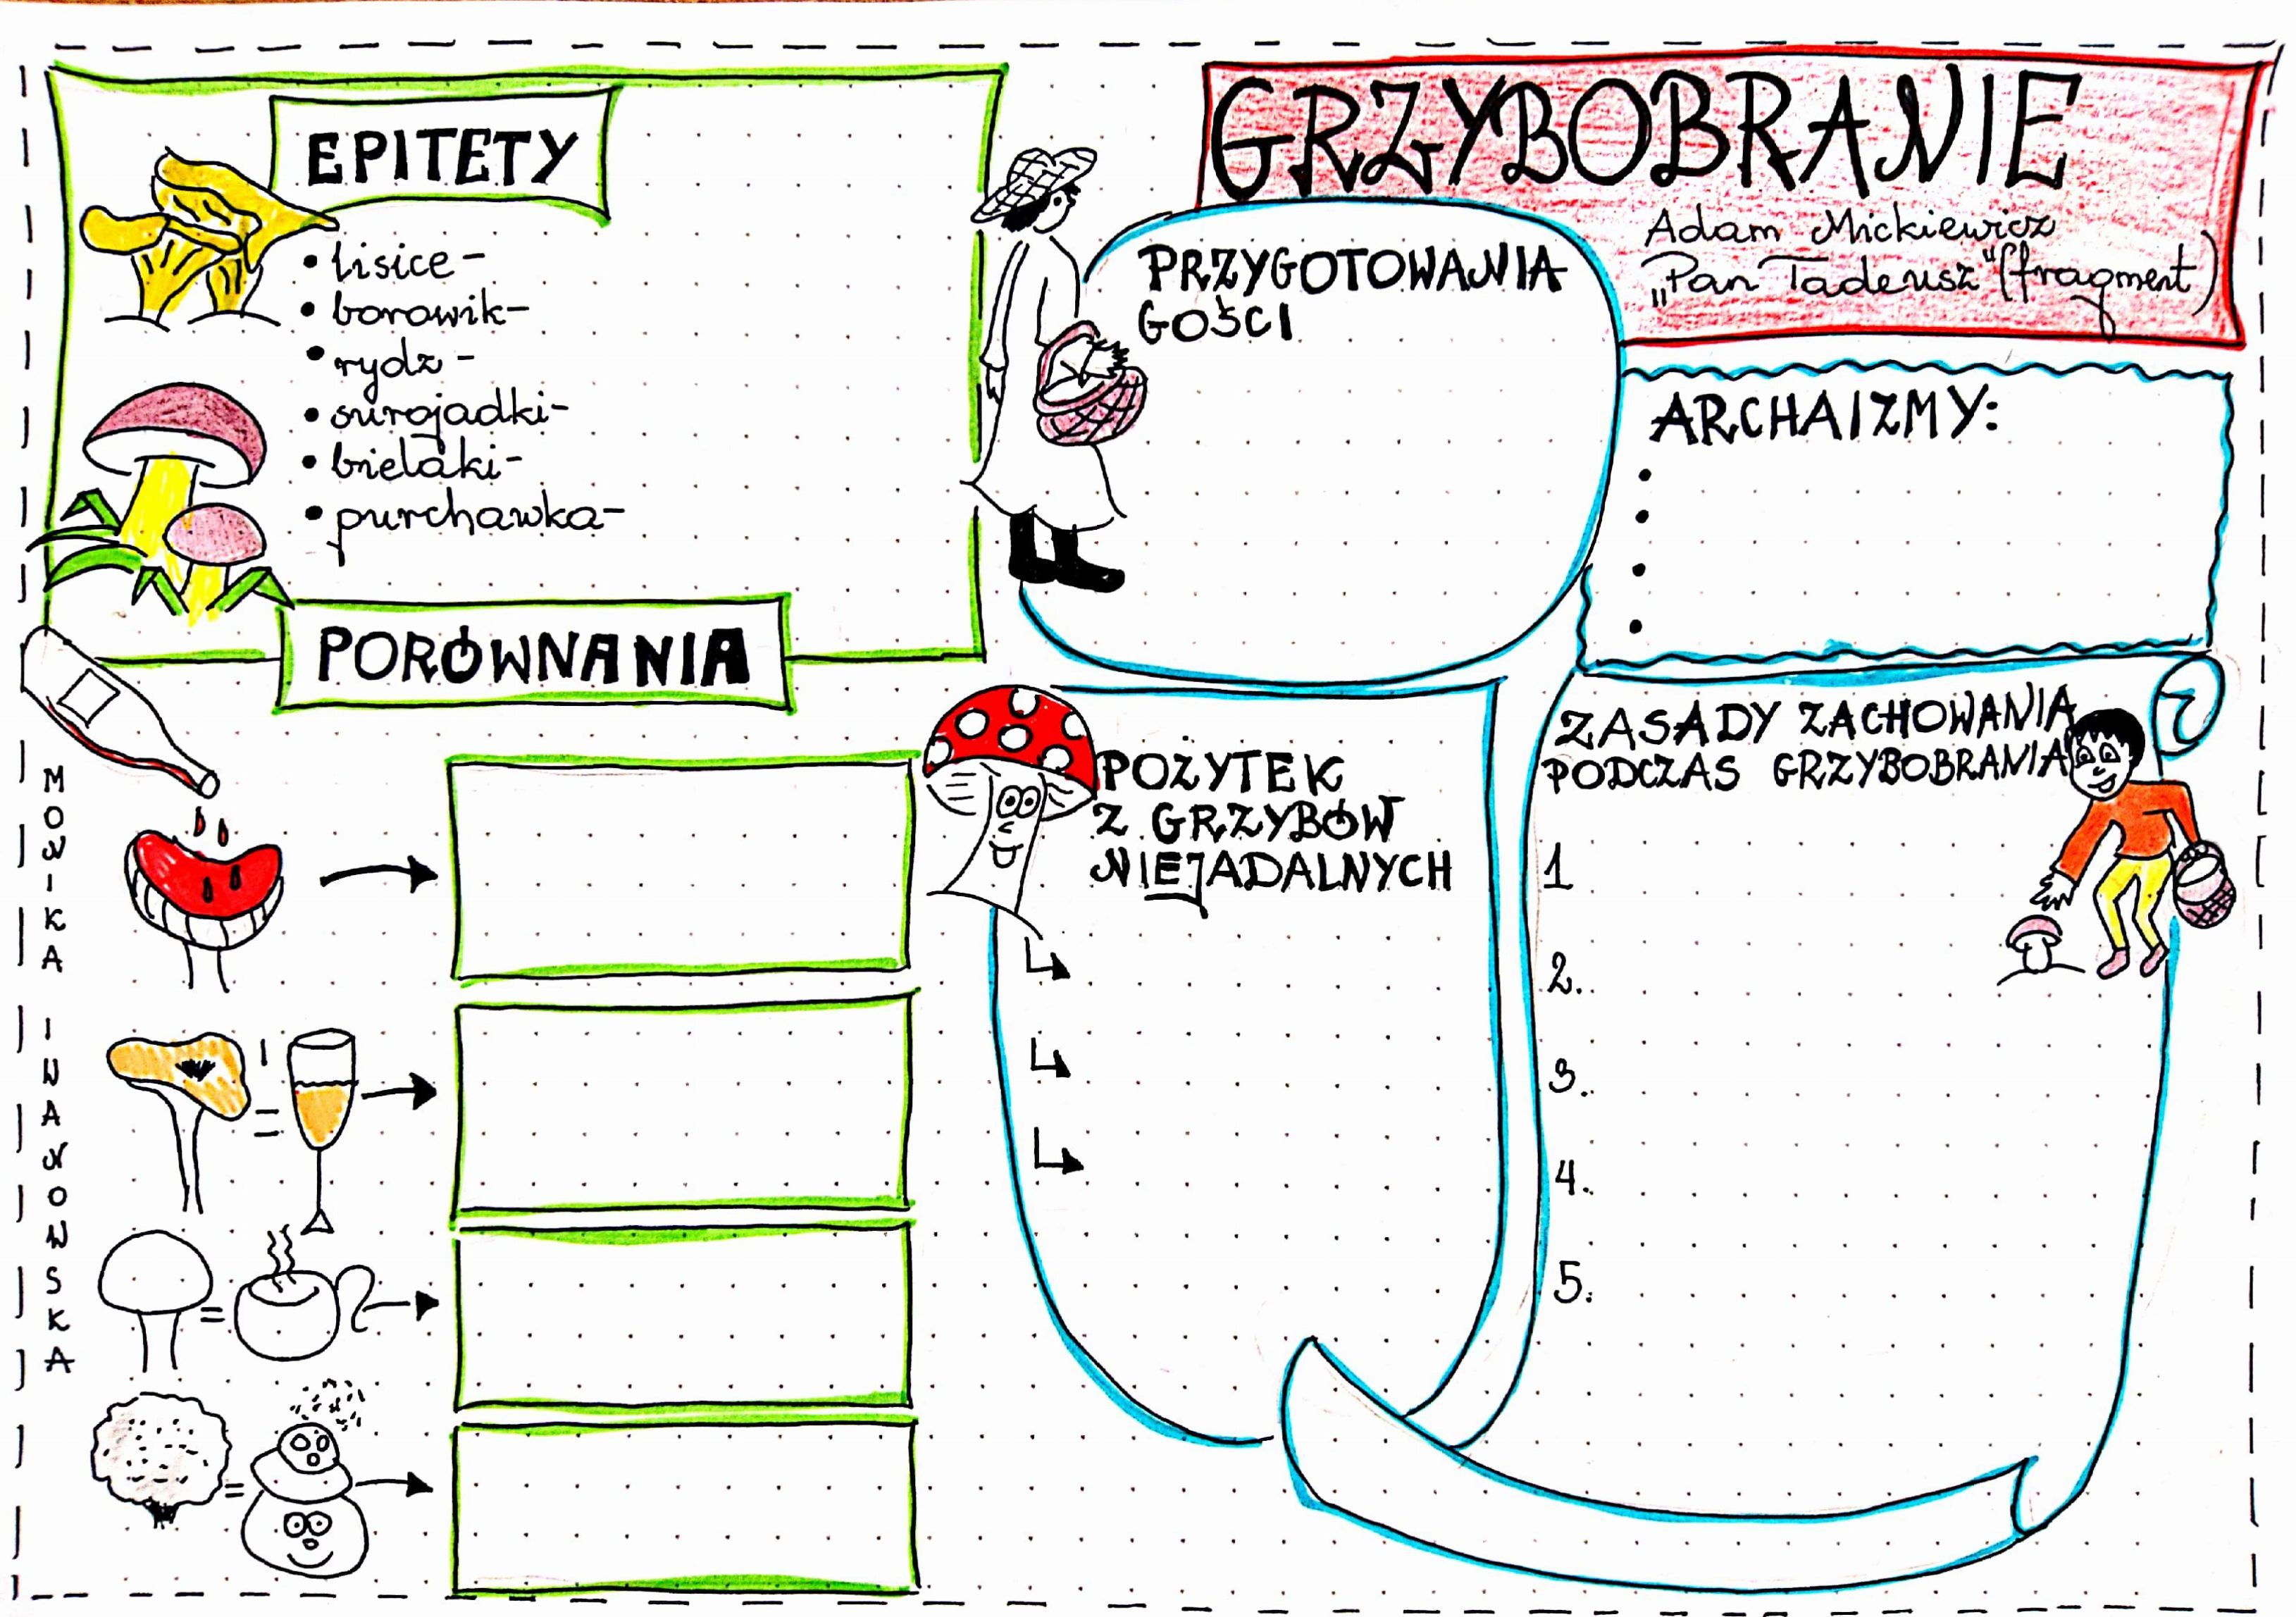 GRZYBOBRANIE
Adam Mickiewicz
„Pan Tadeusz" (fragment)
EPITETY
• lisice-
• borowik-
• rydz -
• surojadki-
• bielaki-
• purchawka-
PORÓWNANIA
PRZYGOTOWANIA
GOŚCI
ARCHAIZMY:
•
•
•
•
POŻYTEK
Z GRZYBÓW
NIEJADALNYCH
ZASADY ZACHOWANIA
PODCZAS GRZYBOBRANIA
1
2.
3.
4.
5.
MONIKA IWANOWSKA